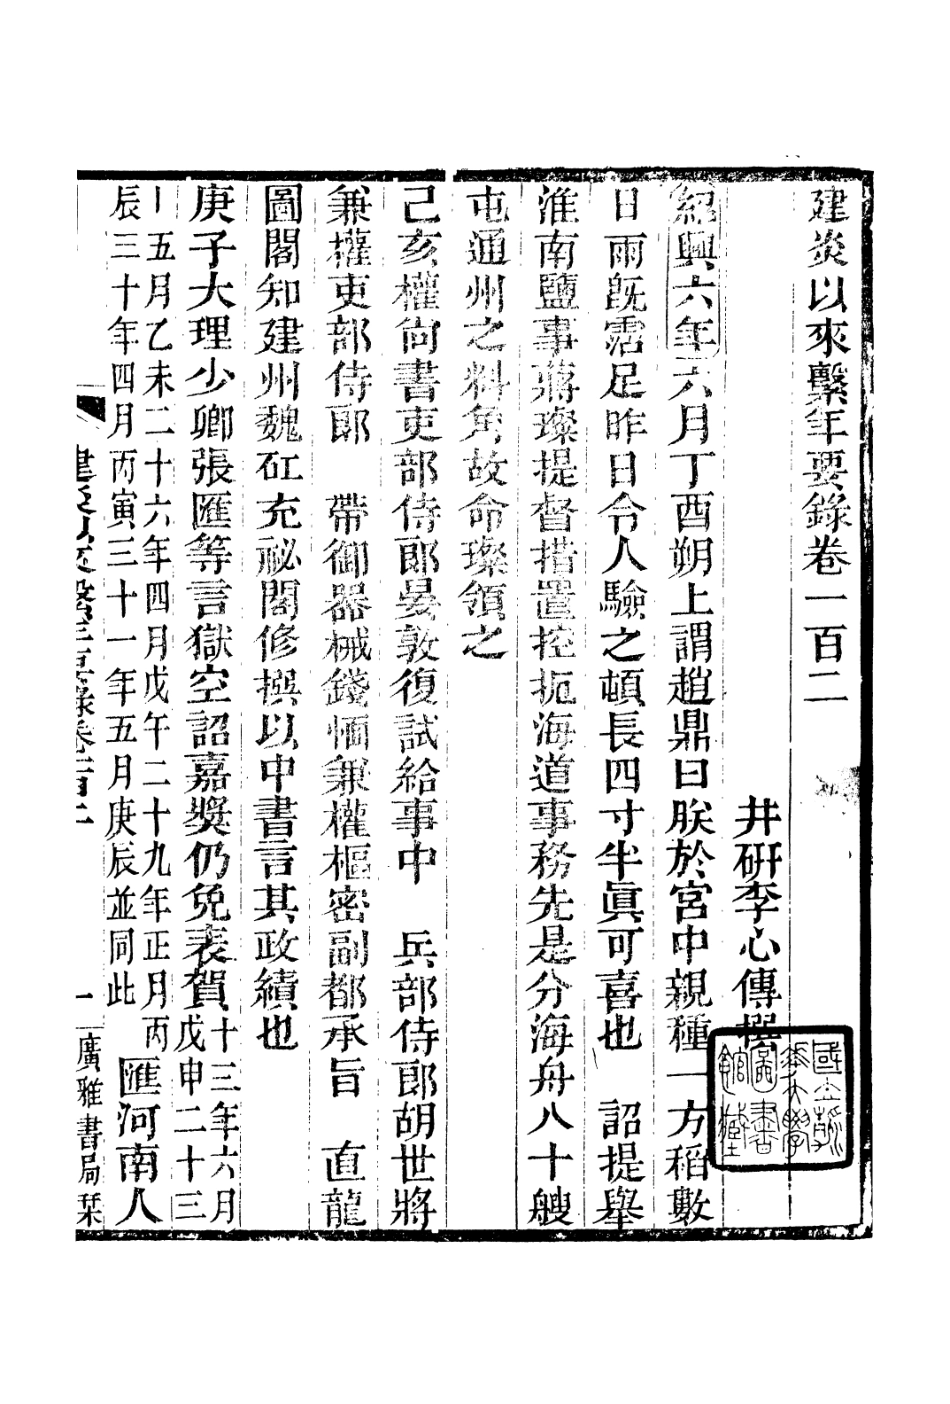 建炎以來繫年要錄卷一百二
井研李心傳撰
紹興六年六月丁酉朔上謂趙鼎曰朕於宮中親種一方稻數
日雨旣霑足昨日令人驗之頓長四寸半眞可喜也　詔提舉
淮南鹽事蔣璨提督措置控扼海道事務先是分海舟八十艘
屯通州之料角故命璨領之
己亥權尚書吏部侍郎晏敦復試給事中　兵部侍郎胡世將
兼權吏部侍郎　帶御器械錢愐兼權樞密副都承旨　直龍
圖閣知建州魏矼充祕閣修撰以中書言其政績也
庚子大理少卿張匯等言獄空詔嘉獎仍免表賀
十三年六月
戊申二十三
五月乙未二十六年四月戊午二十九年正月丙
辰三十年四月丙寅三十一年五月庚辰並同此
匯河南人
建炎以來繫年要錄卷一百二　一　廣雅書局栞
國立清
華大學
圖書
館藏